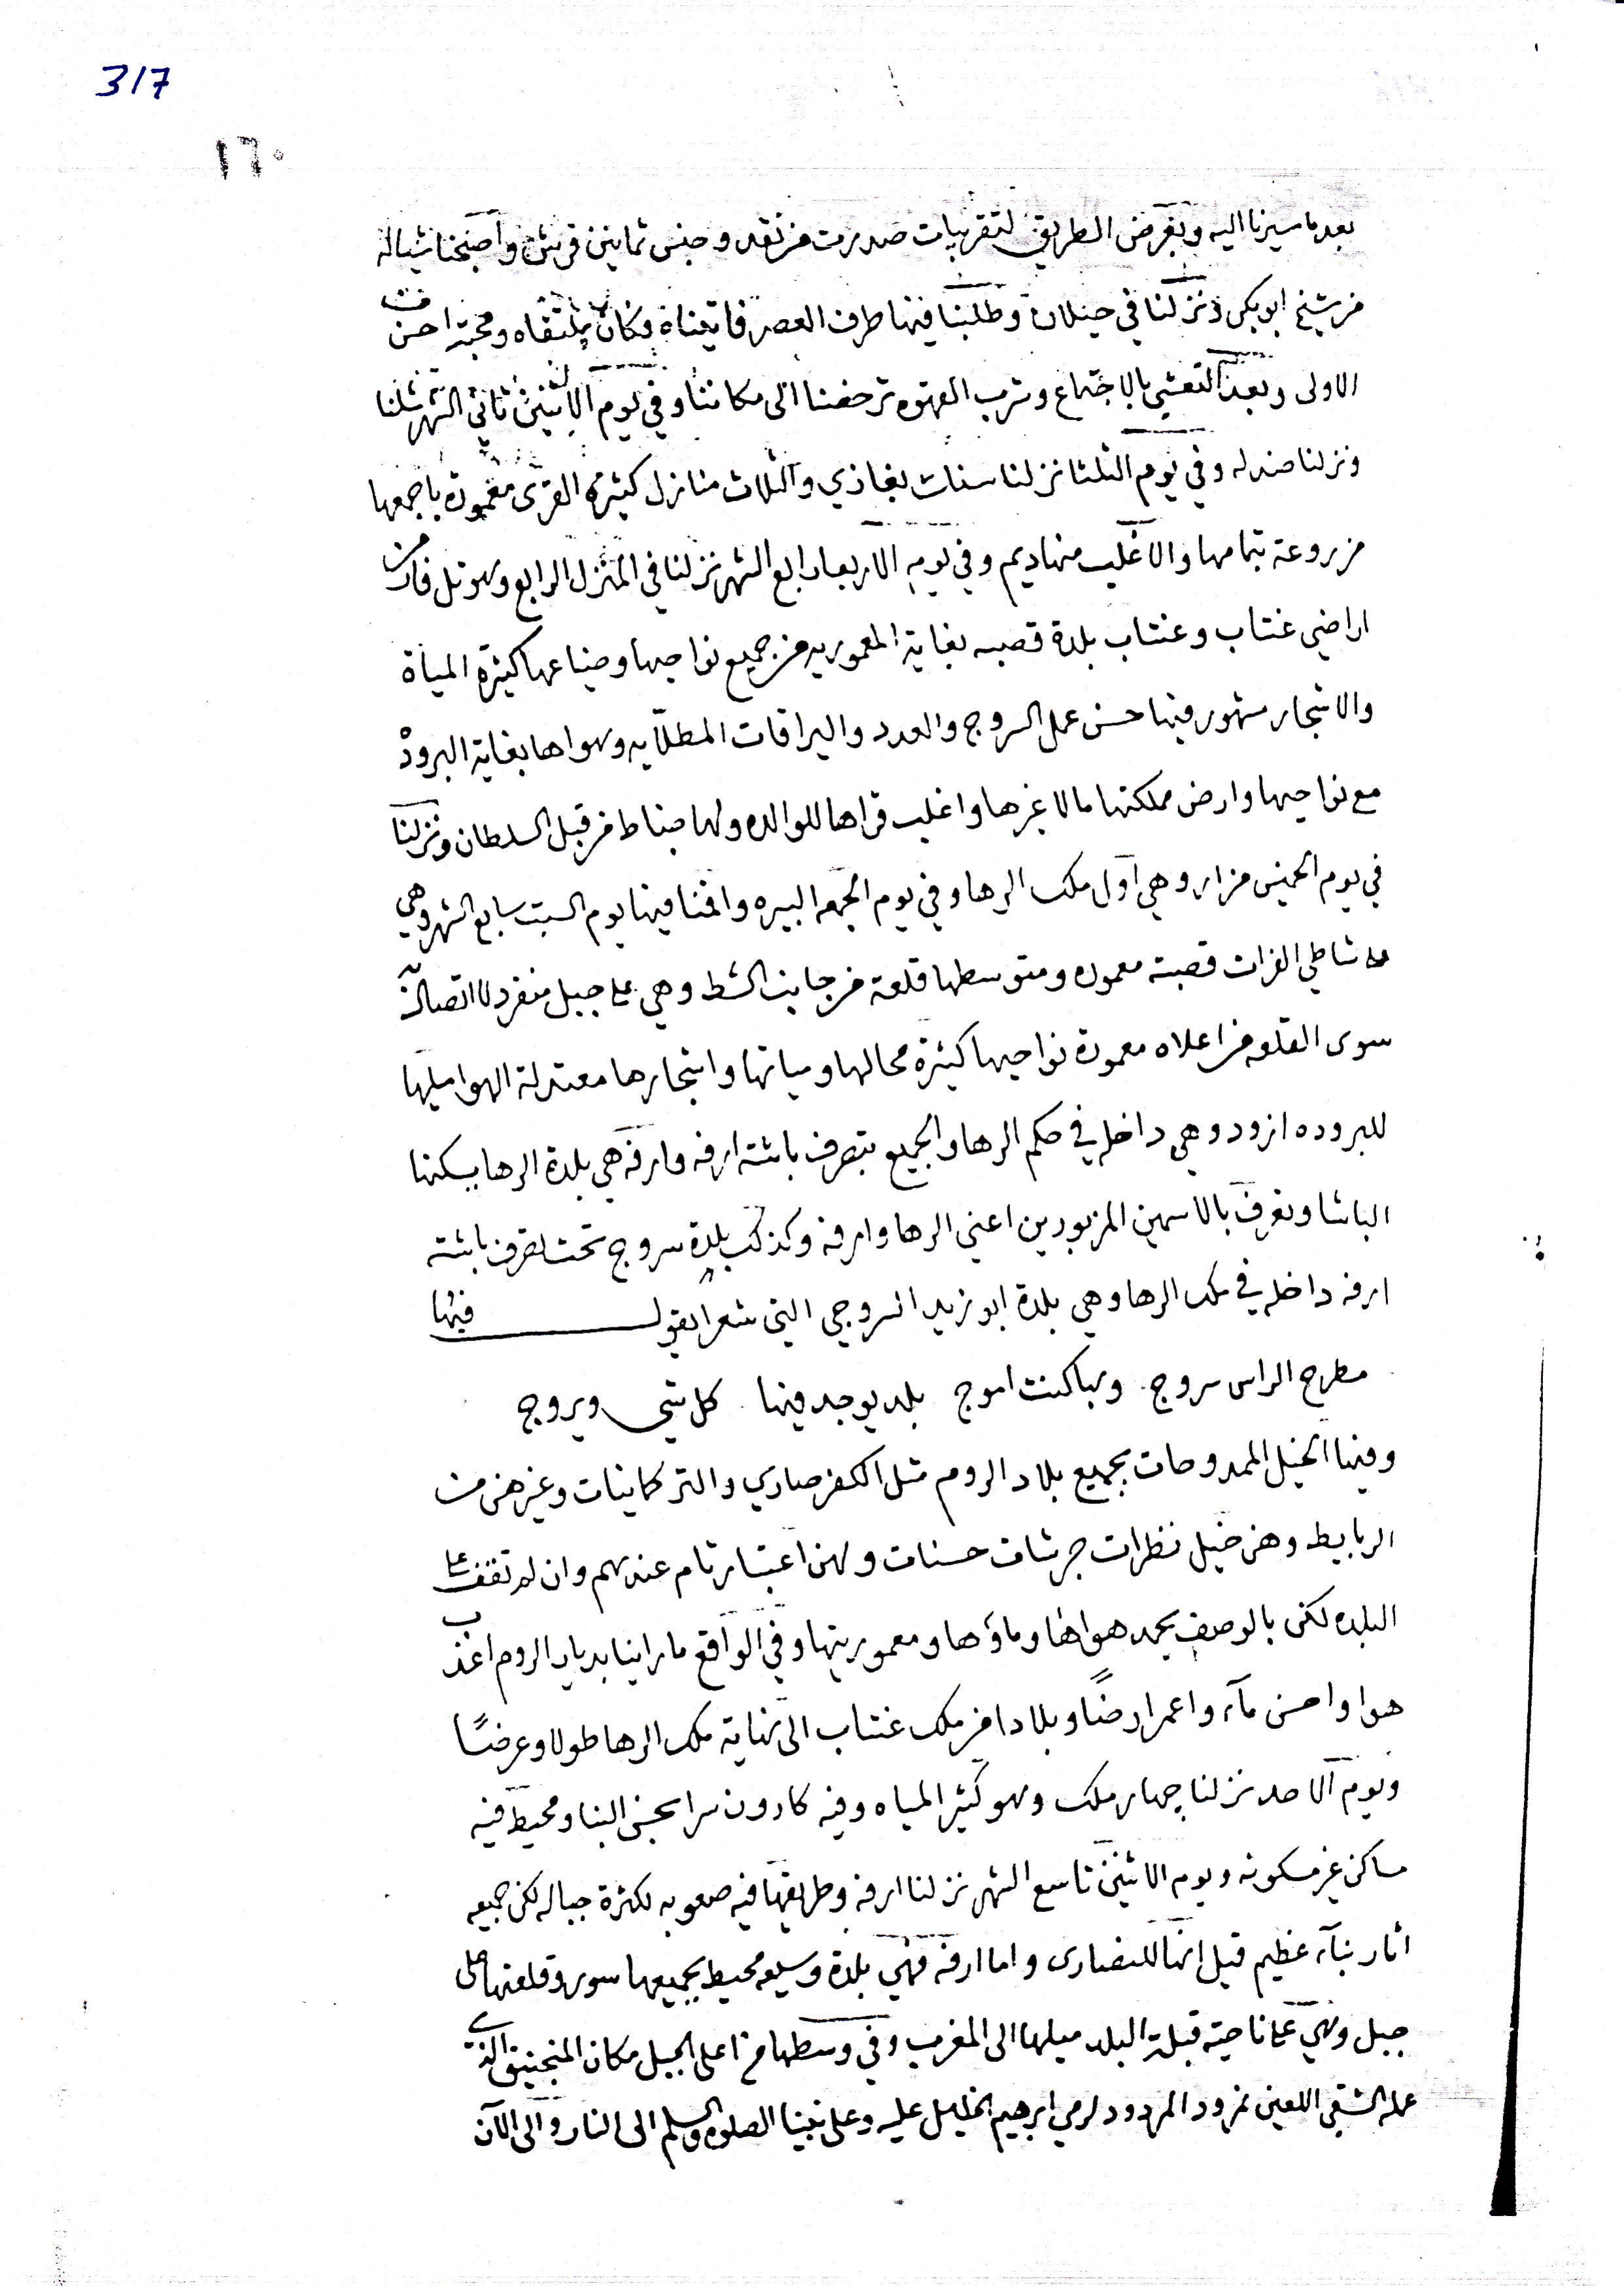 317
١٦٠
بعد ما سيرنا اليه وبغرض الطريق لتقريبات صدرت من نقد وجنس ثمانين قرش واصبحنا شياله
من شيخ ابو بكر ونزلنا في حيلان وطلبنا فيها طرف العصر فاتيناه فكان ملتقاه ومحبته احسن من
الاولى وبعد التعشي بالاجتماع وشرب القهوه ترخصنا الى مكاننا وفي يوم الاثنين ثاني الشهر شلنا
ونزلنا صندله وفي يوم الثلثا نزلنا سنات بغازي والثلاث منازل كثيرة القرى معموره باجمعها
مزروعة بتمامها والاغلب منها ديم وفي يوم الاربعا رابع الشهر نزلنا في المنزل الرابع وهو تل فار من
اراضي عنتاب وعنتاب بلدة قصبه بغاية المعموريه من جميع نواحيها وضياعها كثيرة المياة
والاشجار مشهور فيها حسن عمل السروج والعدد واليراقات المطلّايه وهواها بغاية البرودة
مع نواحيها وارض مملكتها مالا غيرها واغلب قراها للوالده ولها ضباط من قبل السلطان ونزلنا
في يوم الخميس مزار وهي اول ملك الرها وفي يوم الجمعه البيره واقمنا فيها يوم السبت سابع الشهر وهي
على شاطي الفرات قصبة معموره ومتوسطها قلعة من جانب الشط وهي على جبل منفرد لا اتصال له
سوى القلعه من اعلاه معمورة نواحيها كثيرة محالها ومياتها واشجارها معتدلة الهوا ميلها
للبروده ازود وهي داخله في حكم الرها والجميع بتصرف باشة ارفه وارفه هي بلدة الرها يسكنها
الباشا وتعرف بالاسمين المزبورين اعني الرها وارفه وكذلك بلدة سروج تحت تصرف باشة
ارفه داخله في ملك الرها وهي بلدة ابو زيد السروجي التي شعرا يقول فيها
مطرح الراس سروج وبها كنت اموج بلد يوجد فيها كل شي ويروج
وفيها الخيل الممدوحات بجميع بلاد الروم مثل الكفر صاري والتركمانيات وغيرهن من
الربابيط وهن خيل نظرات جرشات حسنات ولهن اعتبار تام عندهم وان لم تقف على
البلده لكن بالوصف يحمد هواها وماؤها ومعموريتها وفي الواقع ما راينا بديار الروم اعذب
هوا واحسن مآء واعمر ارضًا وبلادا من ملك عنتاب الى نهاية ملك الرها طولا وعرضًا
ويوم الاحد نزلنا چهار ملك وهو كثير المياه وفيه كاروان سرا بحسن البنا ومحيط فيه
مساكن غير مسكونه ويوم الاثنين تاسع الشهر نزلنا ارفه وطريقها فيه صعوبه لكثرة جباله لكن جميعه
اثار بنآء عظيم قيل انها للنصارى واما ارفه فهي بلدة وسيعه محيط بجميعها سور وقلعتها على
جبل وهي على ناحية قبلة البلد ميلها الى المغرب وفي وسطها من اعلى الجبل مكان المنجنيق الذي
عمله الشقي اللعين نمرود المردود لرمي ابرهيم الخليل عليه وعلى نبينا الصلوة والسلم الى النار والى الآن